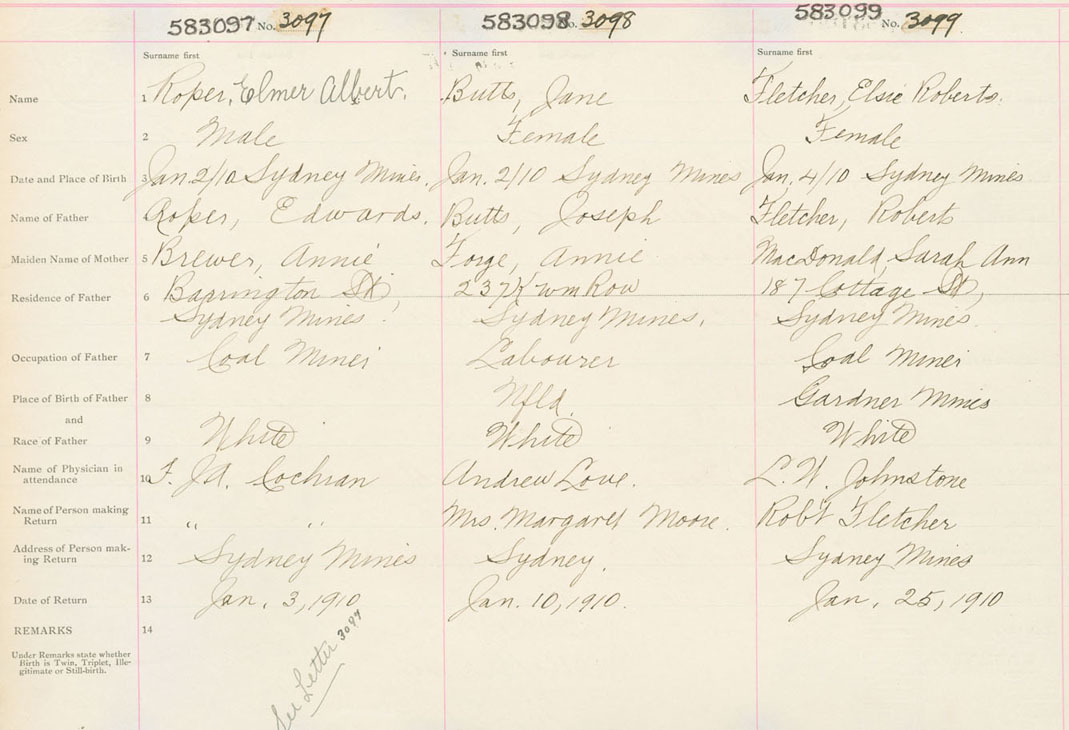 583097 No. 3097 583098 No. 3098 583099 No. 3099
Surname first Surname first Surname first
Name 1 Roper, Elmer Albert. Butts, Jane Fletcher, Elsie Roberts.
Sex 2 Male Female Female
Date and Place of Birth 3 Jan. 2/10 Sydney Mines. Jan. 2/10 Sydney Mines Jan. 4/10 Sydney Mines
Name of Father 4 Roper, Edwards. Butts, Joseph Fletcher, Roberts
Maiden Name of Mother 5 Brewer, Annie Forge, Annie MacDonald, Sarah Ann
Residence of Father 6 Barrington St, 237 Row 187 Cottage St,
Sydney Mines. Sydney Mines. Sydney Mines.
Occupation of Father 7 Coal Miner Labourer Coal Miner
Place of Birth of Father 8 Nfld. Gardner Mines
and
Race of Father 9 White White White
Name of Physician in
attendance 10 Cochran Andrew Love. L. W. Johnstone
Name of Person making
Return 11 " " Mrs. Margaret Moore. Robt Fletcher
Address of Person mak-
ing Return 12 Sydney Mines Sydney. Sydney Mines
Date of Return 13 Jan. 3, 1910 Jan. 10, 1910. Jan. 25, 1910
REMARKS 14
Under Remarks state whether
Birth is Twin, Triplet, Ille-
gitimate or Still-birth.
See Letter 3097